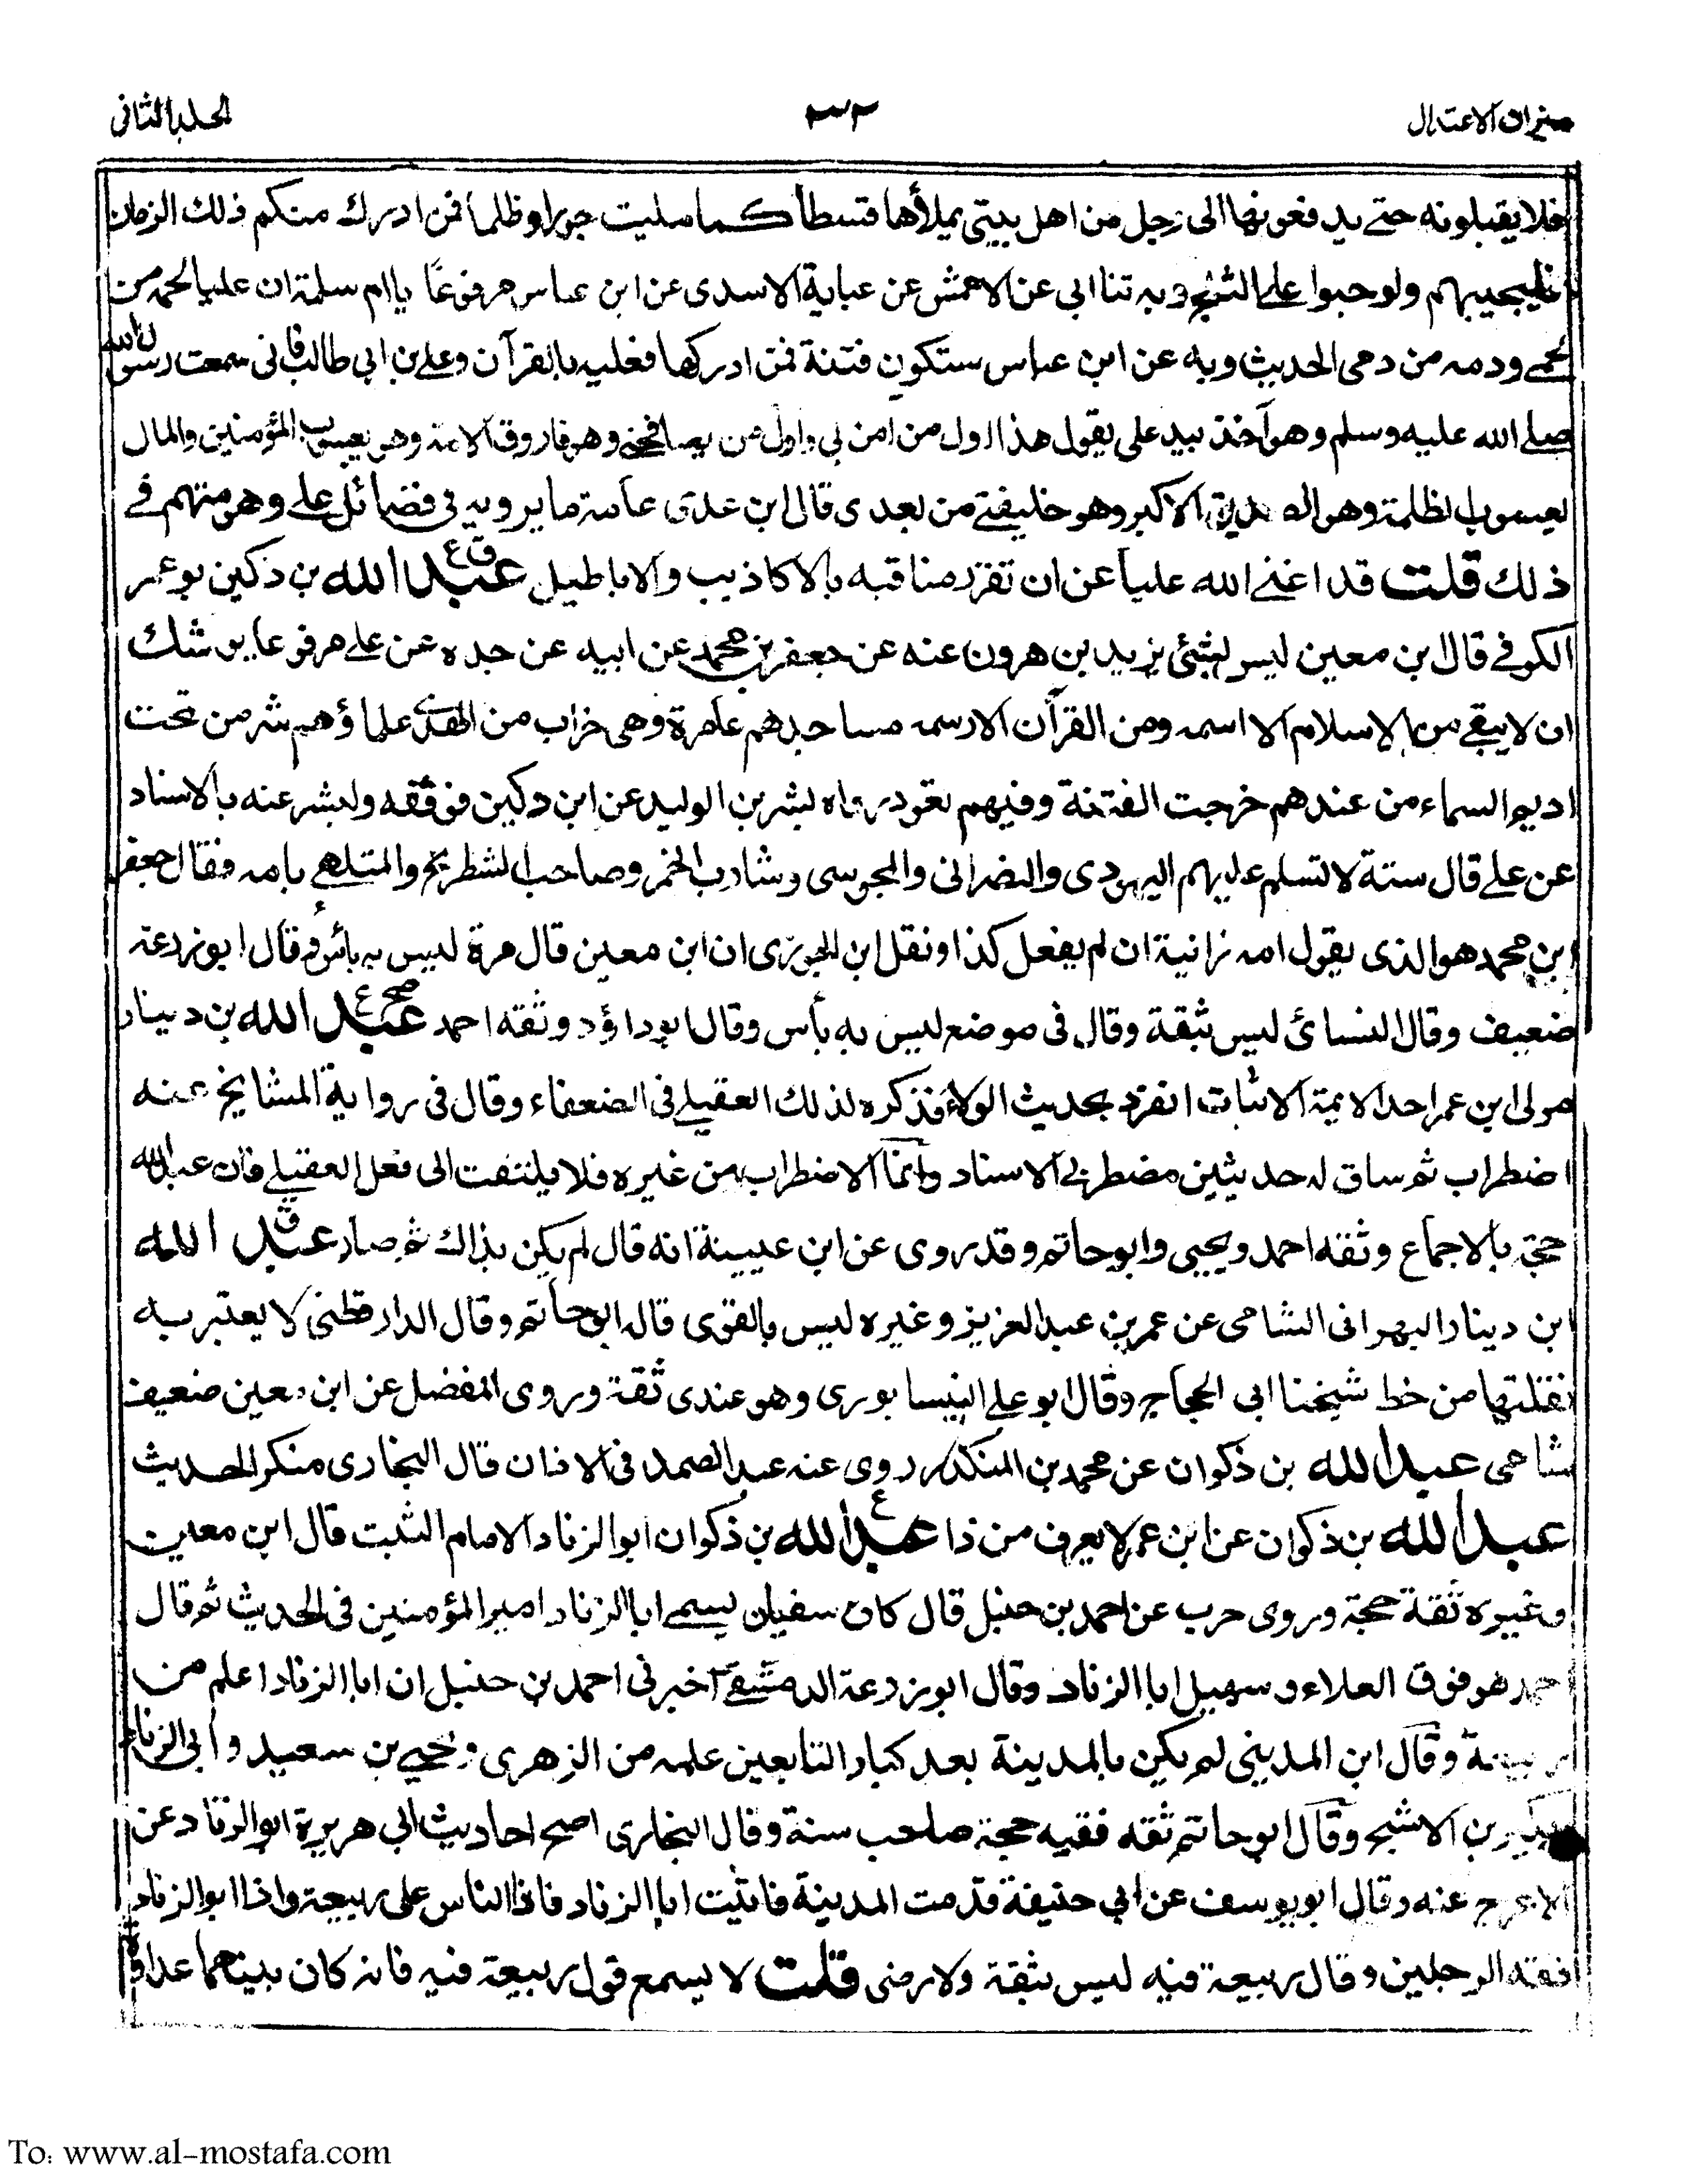 ميزان الاعتدال
٣٢
الجلد الثانى
فلا يقبلونه حتے يدفعونها الى رجل من اهل بيتى يملأها قسطا كما مليت جورا وظلما فمن ادرك منكم ذلك الزمان
فليجيبهم ولو حبوا على الثلج وبه ثنا ابى عن الاعمش عن عباية الاسدى عن ابن عباس مرفوعًا يا ام سلمة ان عليا لحمه من
لحمے ودمه من دمى الحديث وبه عن ابن عباس ستكون فتنة فمن ادركها فعليه بالقرآن وعلے بن ابى طالب فانى سمعت رسول الله
صلے الله عليه وسلم وهو آخذ بيد على يقول هذا اول من امن بى واول من يصافحنے وهو فاروق الامة وهو يعسوب المؤمنين والمال
يعسوب الظلمة وهو الصديق الاكبر وهو خليفتے من بعدى قال ابن عدى عامة ما يرويه فى فضائل علے وهو متهم فے
ذلك قلت قد اغنے الله عليا عن ان تقرر مناقبه بالاكاذيب والاباطيل ق ع عبد الله بن دكين بو عمر
الكوفے قال بن معين ليس بشئى يزيد بن هرون عنه عن جعفر بن محمد عن ابيه عن جده عن علے مرفوعا يوشك
ان لا يبقے من الاسلام الا اسمه ومن القرآن الا رسمه مساجدهم عامرة وهى خراب من الهدے علماؤهم شر من تحت
اديم السماء من عندهم خرجت الفتنة وفيهم تعود رواه بشر بن الوليد عن ابن دكين فوقفه ولبشر عنه بالاسناد
عن علے قال ستة لا تسلم عليهم اليهودى والنصرانى والمجوسى وشارب الخمر وصاحب الشطرنج والمتلهے بامه فقال جعفر
ابن محمد هو الذى يقول امه زانية ان لم يفعل كذا ونقل ابن الجوزى ان ابن معين قال مرة ليس به بأس وقال ابو زرعة
ضعيف وقال النسائى ليس بثقة وقال فى موضع ليس به بأس وقال ابو داؤد وثقه احمد صح ع عبد الله بن دينار
مولى ابن عمر احد الايمة الاثبات انفرد بحديث الولاء فذكره لذلك العقيلے فى الضعفاء وقال فى رواية المشايخ عنه
اضطراب ثم ساق له حديثين مضطربى الاسناد وانما الاضطراب من غيره فلا يلتفت الى فعل العقيلے فان عبد الله
حجة بالاجماع وثقه احمد ويحيى وابو حاتم وقد روى عن ابن عيينة انه قال لم يكن بذاك ثم صار ق عبد الله
ابن دينار البهرانى الشامى عن عمر بن عبد العزيز وغيره ليس بالقوى قاله ابو حاتم وقال الدارقطنى لا يعتبر به
نقلتها من خط شيخنا ابى الحجاج وقال ابو علے النيسابورى وهو عندى ثقة وروى المفضل عن ابن معين ضعيف
شامى عبد الله بن ذكوان عن محمد بن المنكدر روى عنه عبد الصمد فى الاذان قال البخارى منكر الحديث
عبد الله بن ذكوان عن ابن عمر لا يعرف من ذا ع عبد الله بن ذكوان ابو الزناد الامام الثبت قال ابن معين
وغيره ثقة حجة وروى حرب عن احمد بن حنبل قال كان سفيان يسمے ابا الزناد امير المؤمنين فى الحديث ثم قال
احمد هو فوق العلاء وسهيل ابا الزناد وقال ابو زرعة الدمشقے اخبرنى احمد بن حنبل ان ابا الزناد اعلم من
ربيعة وقال ابن المدينى لم يكن بالمدينة بعد كبار التابعين علمه من الزهرى ويحيے بن سعيد وأبى الزناد
بكير بن الاشج وقال ابو حاتم ثقه فقيه حجة صاحب سنة وقال البخارى اصح احاديث ابى هريرة ابو الزناد عن
الاعرج عنه وقال ابو يوسف عن ابى حنيفة قدمت المدينة فاتيت ابا الزناد فاذا الناس على ربيعة واذا ابو الزناد
افقه الرجلين وقال ربيعة فيه ليس بثقة ولا رضى قلت لا يسمع قول ربيعة فيه فانه كان بينهما عداوة
To: www.al-mostafa.com